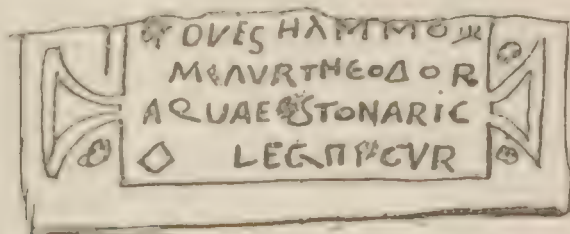 OVES HAMMO
M AVR THEOΔOR
AQUAESTONARIC
LEG CVR